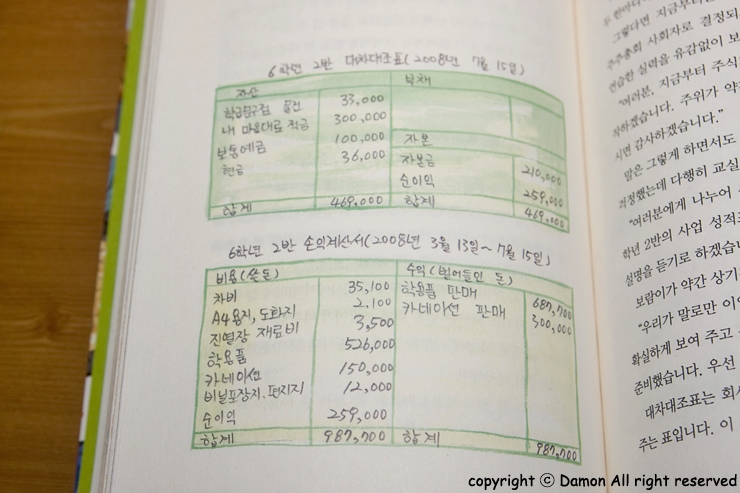 6학년 2반 대차대조표(2008년 7월 15일)
자산 부채
학급문구점 물건 33,000
내 마음대로 적금 300,000
보통예금 100,000 자본
현금 36,000 자본금 210,000
순이익 259,000
합계 469,000 합계 469,000
6학년 2반 손익계산서(2008년 3월 13일~7월 15일)
비용(쓴 돈) 수익(벌어들인 돈)
차비 35,100 학용품 판매 687,700
A4용지, 도화지 2,100 카네이션 판매 300,000
진열장 재료비 3,500
학용품 526,000
카네이션 150,000
비닐포장지, 편지지 12,000
순이익 259,000
합계 987,700 합계 987,700
그렇다면 지금부터
주주총회 사회자로 결정되
연습한 실력을 유감없이 보
“여러분, 지금부터 주식
작하겠습니다. 주위가 약
시면 감사하겠습니다.”
말은 그렇게 하면서도
걱정했는데 다행히 교실
“여러분에게 나누어
학년 2반의 사업 성적
설명을 듣기로 하겠습니
보람이가 약간 상기
“우리가 말로만 이
확실하게 보여 주고
준비했습니다. 우선
대차대조표는 회사
주는 표입니다. 이
copyright ⓒ Damon All right reserved